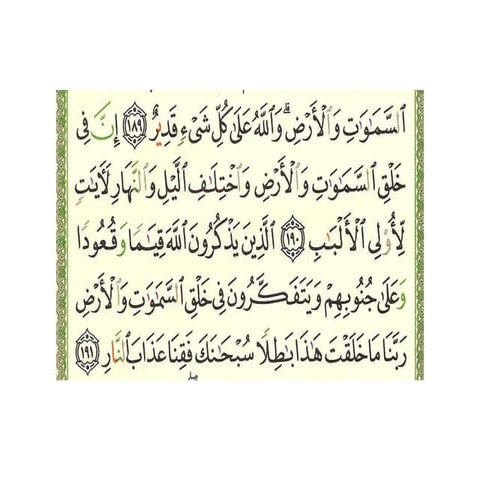 ٱلسَّمَٰوَٰتِ وَٱلْأَرْضِ ۗ وَٱللَّهُ عَلَىٰ كُلِّ شَىْءٍ قَدِيرٌ ﴿١٨٩﴾ إِنَّ فِى
خَلْقِ ٱلسَّمَٰوَٰتِ وَٱلْأَرْضِ وَٱخْتِلَٰفِ ٱلَّيْلِ وَٱلنَّهَارِ لَـَٔايَٰتٍ
لِّأُو۟لِى ٱلْأَلْبَٰبِ ﴿١٩٠﴾ ٱلَّذِينَ يَذْكُرُونَ ٱللَّهَ قِيَٰمًا وَقُعُودًا
وَعَلَىٰ جُنُوبِهِمْ وَيَتَفَكَّرُونَ فِى خَلْقِ ٱلسَّمَٰوَٰتِ وَٱلْأَرْضِ
رَبَّنَا مَا خَلَقْتَ هَٰذَا بَٰطِلًا سُبْحَٰنَكَ فَقِنَا عَذَابَ ٱلنَّارِ ﴿١٩١﴾